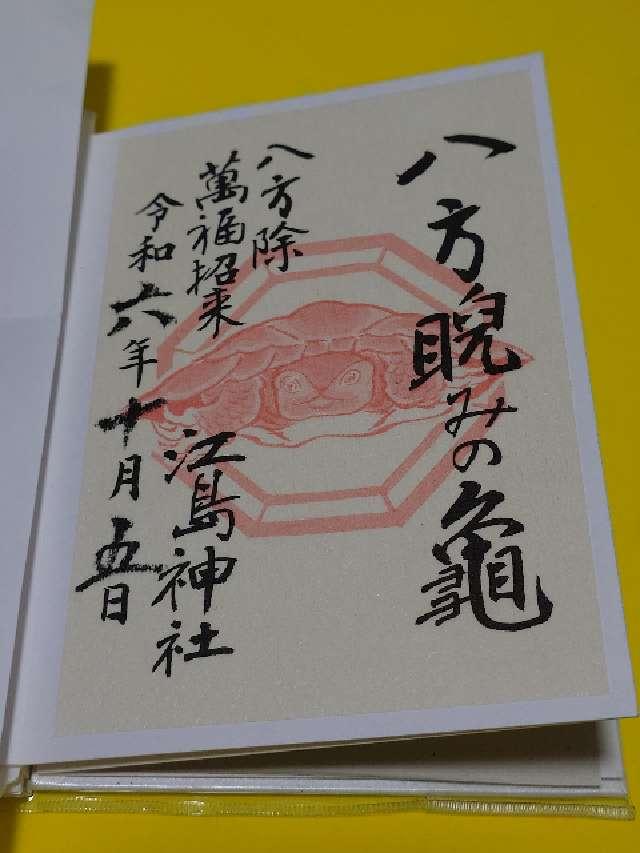 八方睨みの亀
八方除
萬福招来
江島神社
令和六年十月五日